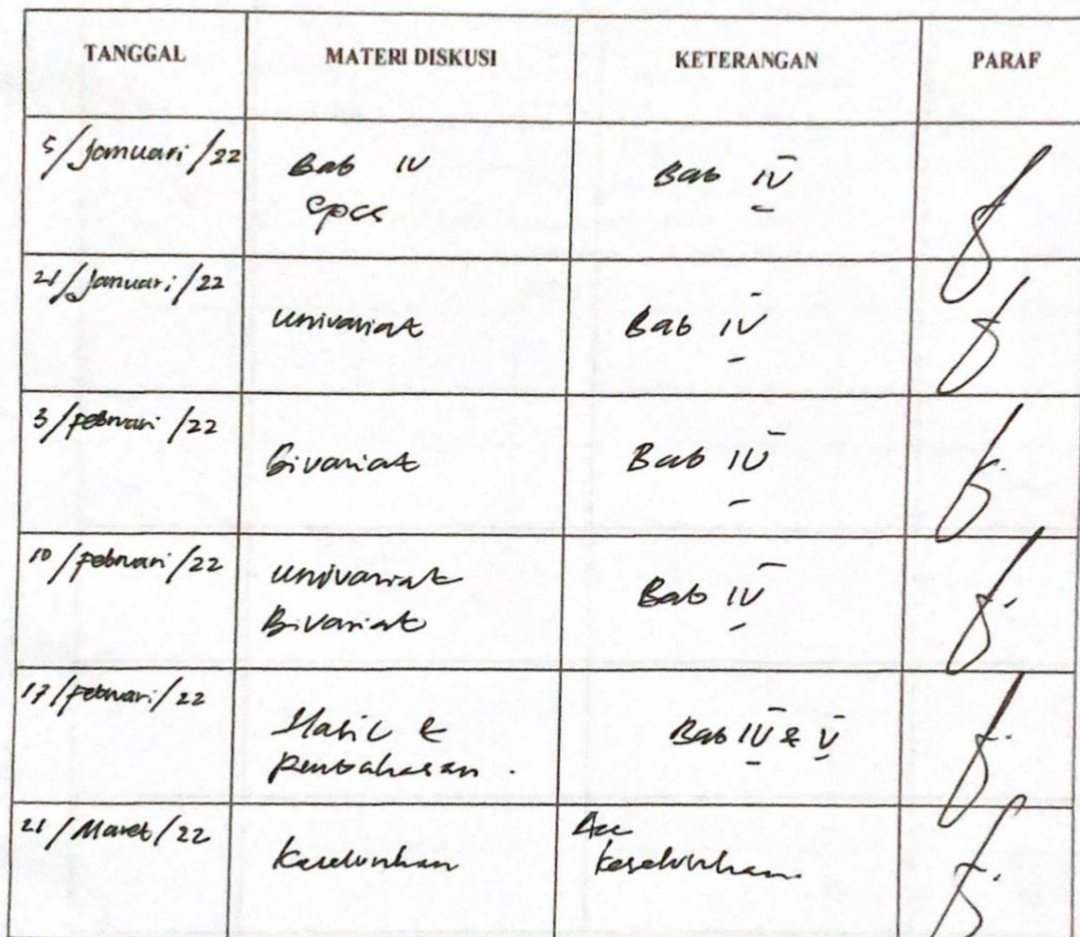 TANGGAL MATERI DISKUSI KETERANGAN PARAF
5/Januari/22 Bab IV Bab IV
Spss
21/Januari/22 Univariat Bab IV
3/Februari/22 Bivariat Bab IV
10/Februari/22 Univariat Bab IV
Bivariat
17/Februari/22 Hasil & Bab IV & V
Pembahasan.
21/Maret/22 Keseluruhan Acc
Keseluruhan